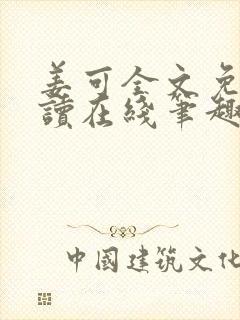 姜可全文免
讀在綫筆趣
中國建筑文化